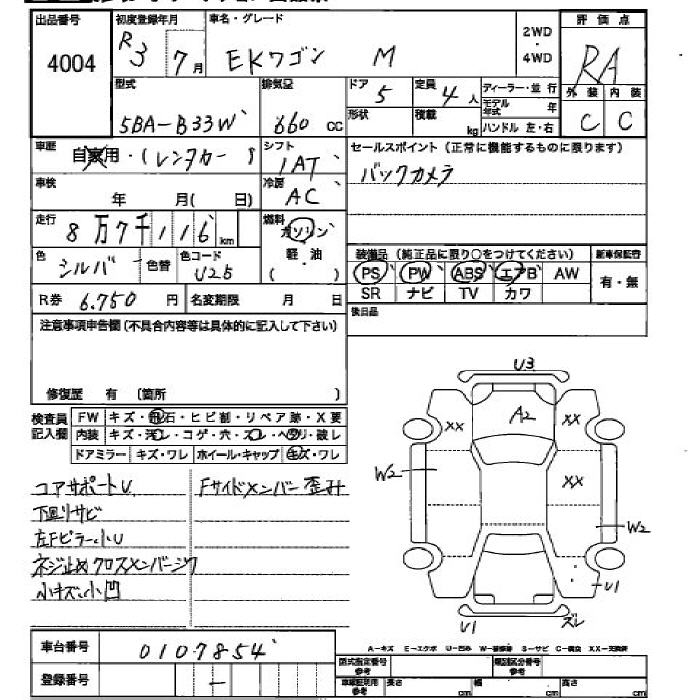 出品番号 初度登録年月 車名・グレード 評価点
4004 R3 7月 EKワゴン M 2WD・4WD RA
型式 排気量 ドア 定員 ディーラー・並行 外装 内装
5BA-B33W 660cc 5 4人 モデル年式 年 C C
形状 積載 kg ハンドル 左・右
車歴 自家用・(レンタカー) シフト 1AT セールスポイント(正常に機能するものに限ります)
車検 年 月(日) 冷房 AC バックカメラ
走行 8万7千116km 燃料 ガソリン
軽・油
( )
色 シルバー 色替 色コード U25 装備品(純正品に限り○をつけてください) 新車保証書
PS PW ABS エアB AW 有・無
SR ナビ TV カワ
R券 6.750円 名変期限 月 日
後日品
注意事項申告欄(不具合内容等は具体的に記入して下さい)
修復歴 有(箇所 )
検査員記入欄 FW キズ・飛石・ヒビ割・リペア跡・X要
内装 キズ・汚レ・コゲ・穴・スレ・ヘタリ・破レ
ドアミラー キズ・ワレ ホイール・キャップ キズ・ワレ
コアサポートU Fサイドメンバー歪み
下回りサビ
左Fピラー小U
ネジ止めクロスメンバージク
小キズ、小凹
U3
A2
XX XX
W2 XX
W2
U1
U1 ズレ
A-キズ E-エクボ U-凹み W-補修跡 S-サビ C-腐食 XX-交換済
車台番号 0107854
登録番号 -
型式指定番号参考 類別区分番号参考
車庫証明用参考 長さ cm 幅 cm 高さ cm